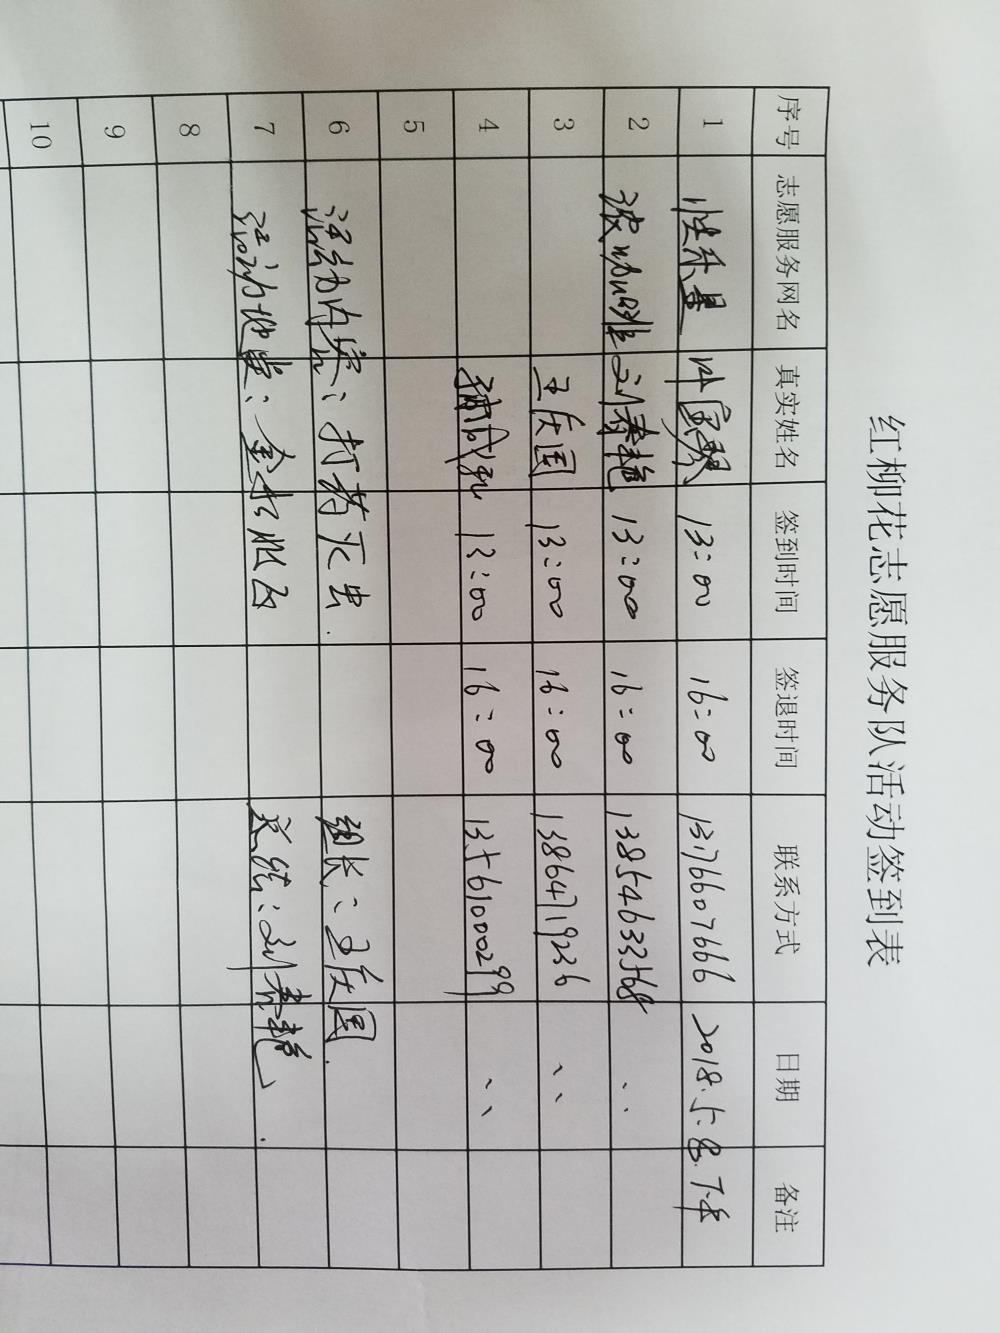 红柳花志愿服务队活动签到表
序号 志愿服务网名 真实姓名 签到时间 签退时间 联系方式 日期 备注
1 13:00 16:00 13176607666 2018.5.8.下午
2 刘春艳 13:00 16:00 13854633568 〃
3 王庆国 13:00 16:00 13864719236 〃
4 13:00 16:00 13561000299 〃
5
6 活动内容:打药灭虫. 组长:王庆国.
7 活动地点: 总结:刘春艳.
8
9
10